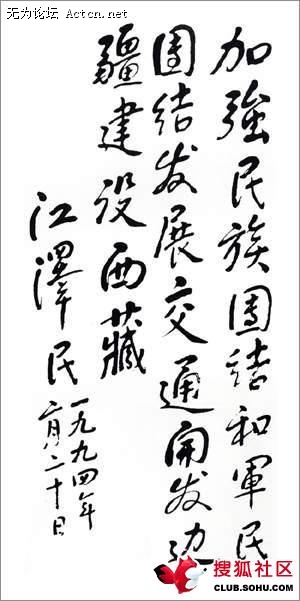 无为论坛 Actcn.net
加強民族團结和軍民
團结发展交通開发边
疆建设西藏
江澤民
一九九四年
六月二十日
搜狐社区
CLUB.SOHU.COM